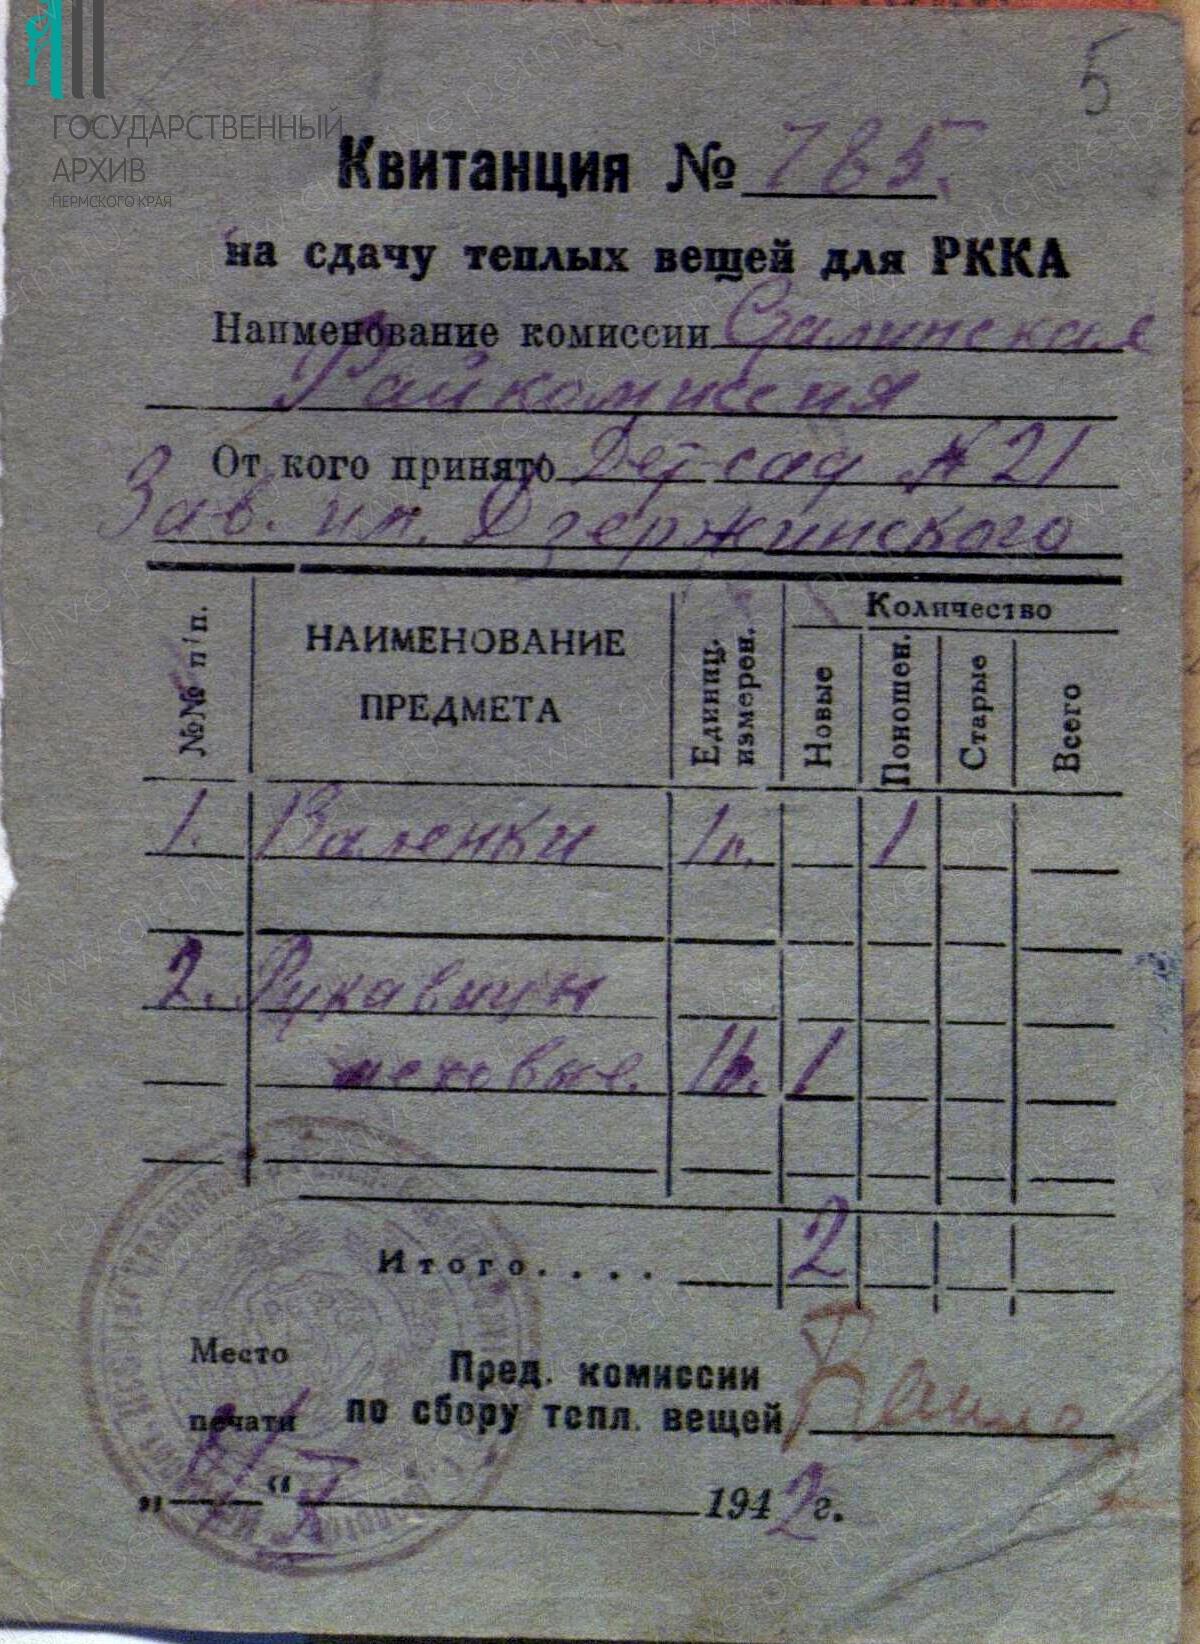 5
ГОСУДАРСТВЕННЫЙ
АРХИВ
ПЕРМСКОГО КРАЯ
Квитанция № 785.
на сдачу теплых вещей для РККА
Наименование комиссии Сталинская
Райкомиссия
От кого принято Дет-сад № 21
Зав. им. Дзержинского
№№ п/п.
НАИМЕНОВАНИЕ ПРЕДМЕТА
Единиц. измерен.
Количество
Новые
Поношен.
Старые
Всего
1. Валенки 1п. 1
2. Рукавицы
меховые. 1п. 1
Итого. . . . 2
Место Пред. комиссии
печати по сбору тепл. вещей
„ “ 1942г.